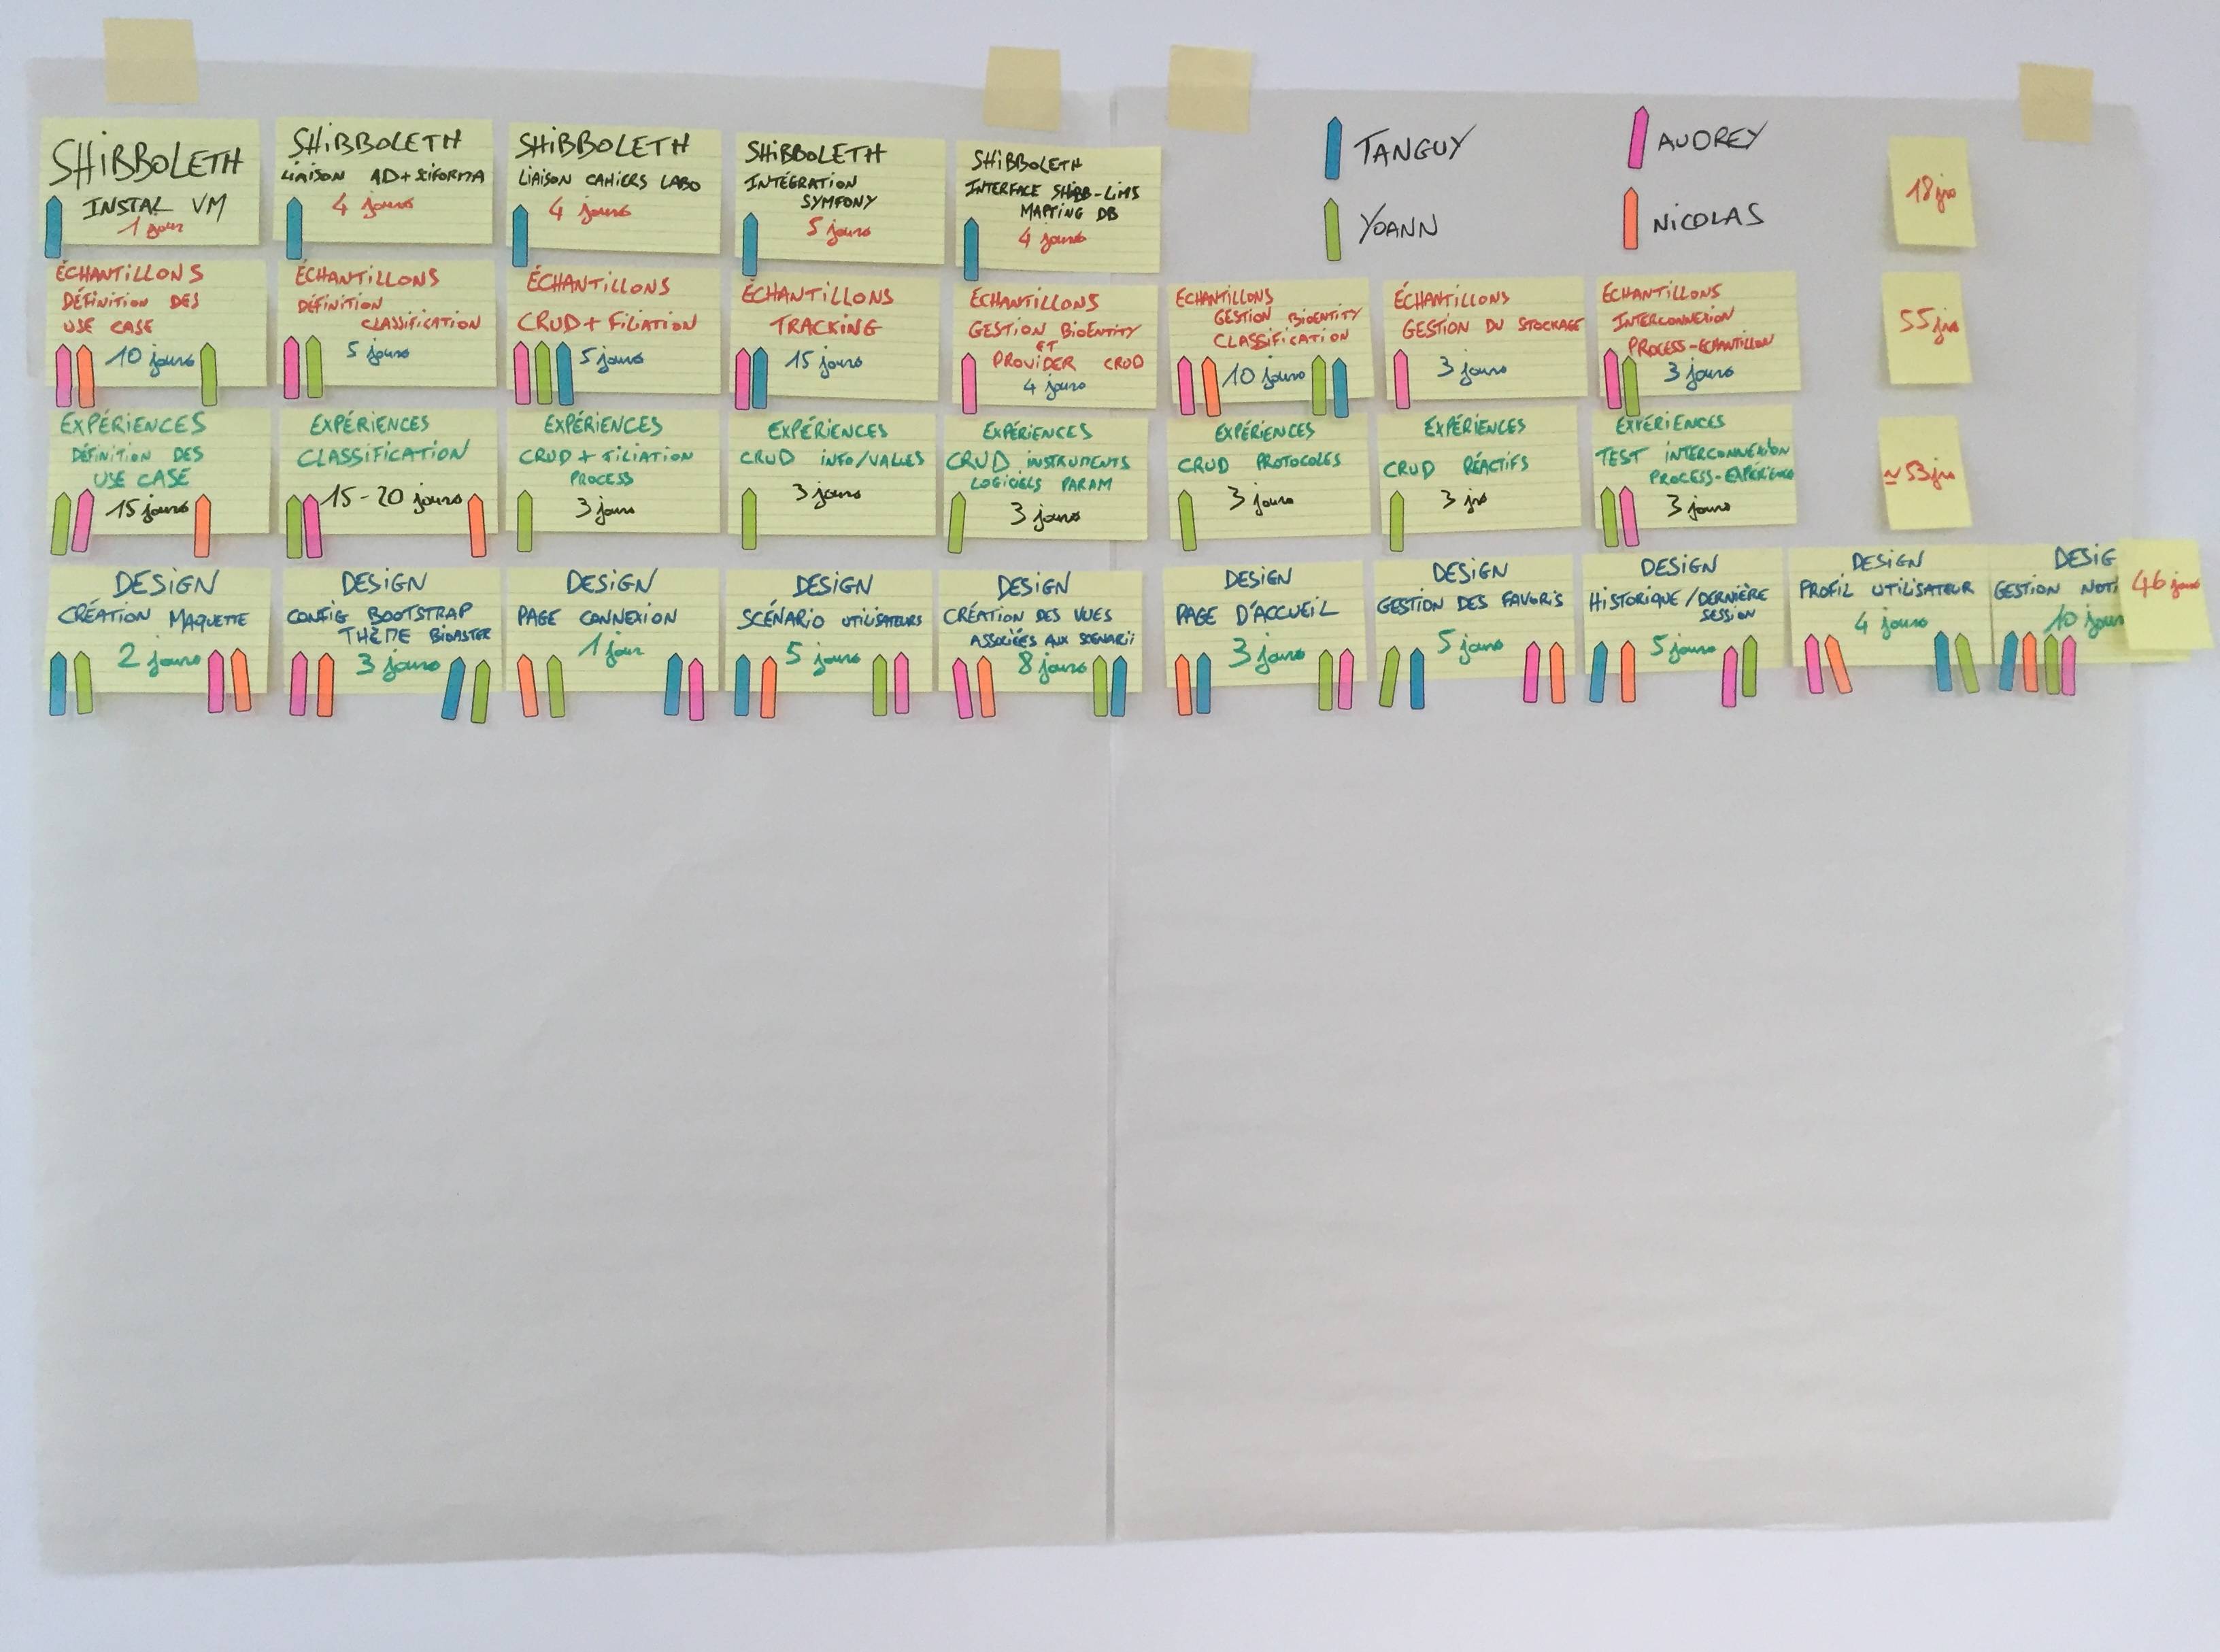 SHiBBOLETH
INSTAL VM
1 jour
SHiBBOLETH
LiAiSON AD + SCiFORMA
4 jours
SHiBBOLETH
LIAISON CAHIERS LABO
4 jours
SHiBBOLETH
INTÉGRATION
SYMFONY
5 jours
SHiBBOLETH
INTERFACE SHIBB-LIMS
MAPPING DB
4 jours
TANGUY
AUDREY
YOANN
NiCOLAS
18 jrs
ÉCHANTiLLONS
DÉFiNiTiON DES
USE CASE
10 jours
ÉCHANTiLLONS
DÉFiNiTiON
CLASSiFiCATiON
5 jours
ÉCHANTiLLONS
CRUD + FiLiATiON
5 jours
ÉCHANTiLLONS
TRACKiNG
15 jours
ÉCHANTiLLONS
GESTiON BiOENTiTY
ET
PROViDER CRUD
4 jours
ECHANTiLLONS
GESTiON BiOENTiTY
CLASSiFiCATiON
10 jours
ÉCHANTiLLONS
GESTiON DU STOCKAGE
3 jours
ECHANTiLLONS
INTERCONNEXiON
PROCESS-ECHANTiLLON
3 jours
55 jrs
EXPÉRiENCES
DÉFiNiTiON DES
USE CASE
15 jours
EXPÉRiENCES
CLASSiFiCATiON
15-20 jours
EXPÉRiENCES
CRUD + FiLiATiON
PROCESS
3 jours
EXPÉRiENCES
CRUD iNFO/VALUES
3 jours
EXPÉRiENCES
CRUD iNSTRUMENTS
LOGiCiELS PARAM
3 jours
EXPÉRiENCES
CRUD PROTOCOLES
3 jours
EXPÉRiENCES
CRUD RÉACTiFS
3 jrs
EXPÉRiENCES
TEST iNTERCONNEXiON
PROCESS-EXPÉRiENCE
3 jours
≃ 53 jrs
DESiGN
CRÉATiON MAQUETTE
2 jours
DESiGN
CONFiG BOOTSTRAP
THÈME BiOASTER
3 jours
DESiGN
PAGE CONNEXiON
1 jour
DESiGN
SCÉNARiO UTiLiSATEURS
5 jours
DESiGN
CRÉATiON DES VUES
ASSOCiÉES AUX SCENARii
8 jours
DESiGN
PAGE D'ACCUEiL
3 jours
DESiGN
GESTiON DES FAVORiS
5 jours
DESiGN
HiSTORiQUE/DERNiÈRE
SESSiON
5 jours
DESiGN
PROFiL UTiLiSATEUR
4 jours
DESiG
GESTiON NOTi
10 jours
46 jours